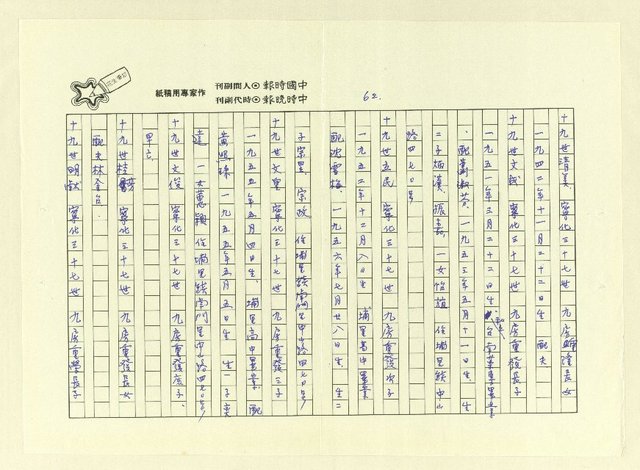 中國時報⊙人間副刊
中時晚報⊙時代副刊
作家專用稿紙
62.
十九世清美 寧化三十七世 九房 長女
一九四二年十一月二十二日生 配夫
十九世文斌 寧化三十七世 九房重發長子
一九五一年三月二十二日生 台南 畢業
配 淑芬 一九五三年五月十一日生 生
二子炳漢、振 一女怡 住埔里鎮中山
路四七〇號
十九世立民 寧化三十七世 九房重發次子
一九五二年十二月八日生 埔里高中畢業
配 雪梅 一九五六年七月廿八日生 生二
子宗 宗政 住埔里鎮南門里中山路四七〇號
十九世文聖 寧化三十七世 九房重發三子
一九五五年五月四日生 埔里高中畢業 配
黃 珠 一九五五年五月五日生 生一子奕
達 一女蕙穎 住埔里鎮南門里中山路四七〇號
十九世文俊 寧化三十七世 九房重發庶子
早亡
十九世 寧化三十七世 九房重發長女
配夫林金
十九世明 寧化三十七世 九房重榮長子